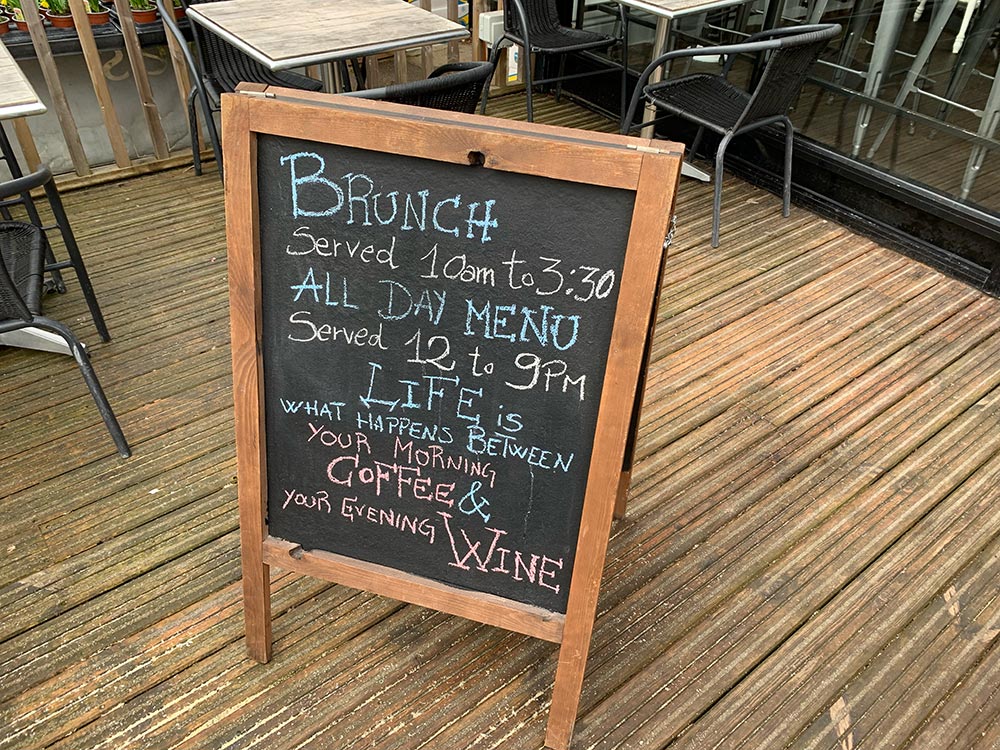 BRUNCH
Served 10am to 3:30
ALL DAY MENU
Served 12 to 9PM
LIFE is
WHAT HAPPENS BETWEEN
YOUR MORNING
COFFEE &
YOUR EVENING WINE